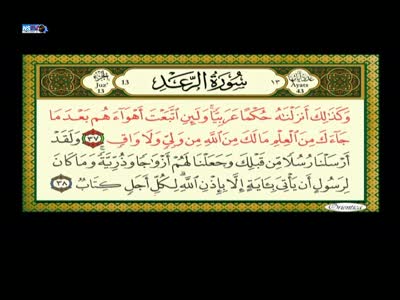 الجزء
Juz'
13
13
سُورَةُ الرَّعْدِ
١٣
Ayats
43
وَكَذَٰلِكَ أَنزَلْنَٰهُ حُكْمًا عَرَبِيًّا ۚ وَلَئِنِ ٱتَّبَعْتَ أَهْوَآءَهُم بَعْدَ مَا
جَآءَكَ مِنَ ٱلْعِلْمِ مَا لَكَ مِنَ ٱللَّهِ مِن وَلِىٍّ وَلَا وَاقٍ ٣٧ وَلَقَدْ
أَرْسَلْنَا رُسُلًا مِّن قَبْلِكَ وَجَعَلْنَا لَهُمْ أَزْوَٰجًا وَذُرِّيَّةً ۚ وَمَا كَانَ
لِرَسُولٍ أَن يَأْتِىَ بِـَٔايَةٍ إِلَّا بِإِذْنِ ٱللَّهِ ۗ لِكُلِّ أَجَلٍ كِتَابٌ ٣٨